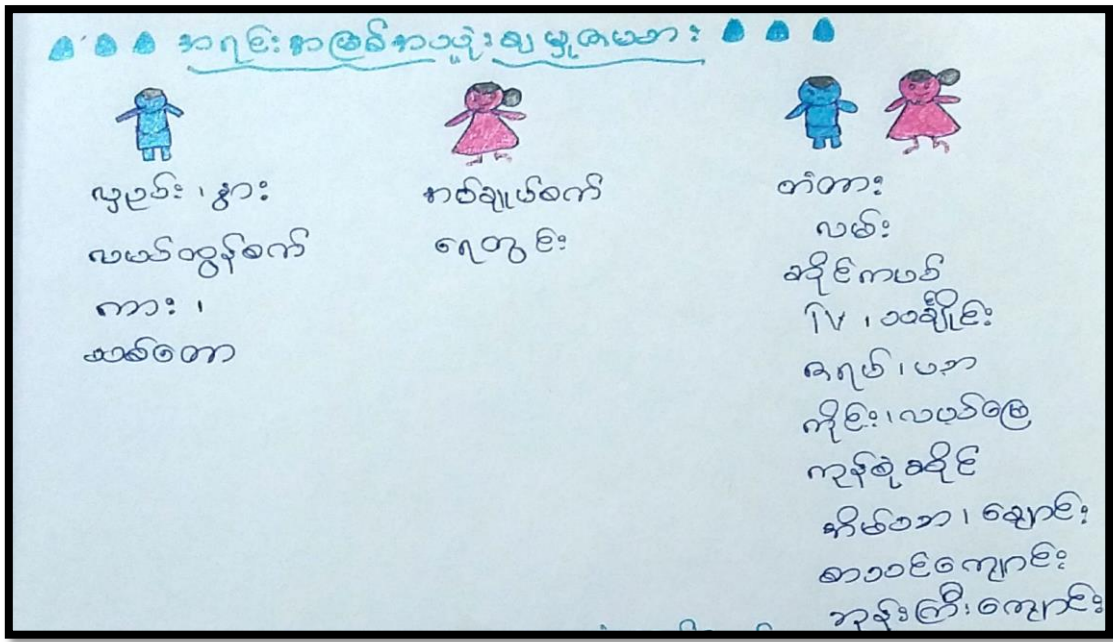 အရင်းအမြစ်အသုံးချမှုဇယား
လှည်း၊ နွား
လယ်ထွန်စက်
ကား၊
သစ်တော
အပ်ချုပ်စက်
ရေတွင်း
တံတား
လမ်း
ဆိုင်ကယ်
TV ၊ သင်္ချိုင်း
ဇရပ်၊
ကိုင်း၊ လယ်မြေ
ကုန်စုံဆိုင်
အိမ်သာ၊ ချောင်း
စာသင်ကျောင်း
ဘုန်းကြီးကျောင်း